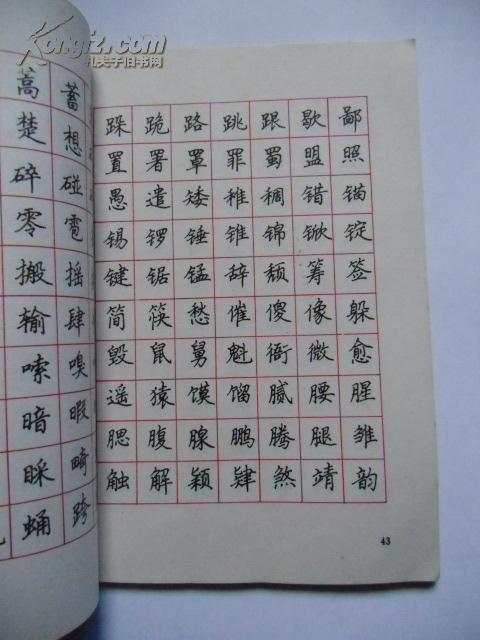 Kongfz.com
孔夫子旧书网
蒿蓄
楚想
碎碰
零雹
搬摇
输肆
嗦嗅
暗暇
睬畸
蛹跨
跺跪路跳跟歇鄙
置署罩罪蜀盟照
愚遣矮稚稠错锚
锡锣锤锥锦锨锭
键锯锰辞颓筹签
简筷愁催傻像躲
毁鼠舅魁衙微愈
遥猿馍馏腻腰腥
腮腹腺鹏腾腿雏
触解颖肄煞靖韵
43